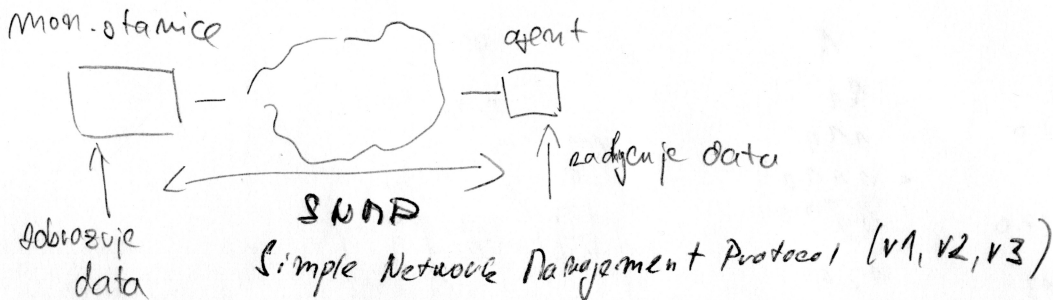 mon. stanice
agent
zachycuje data
SNMP
zobrazuje
data
Simple Network Management Protocol (v1, v2, v3)